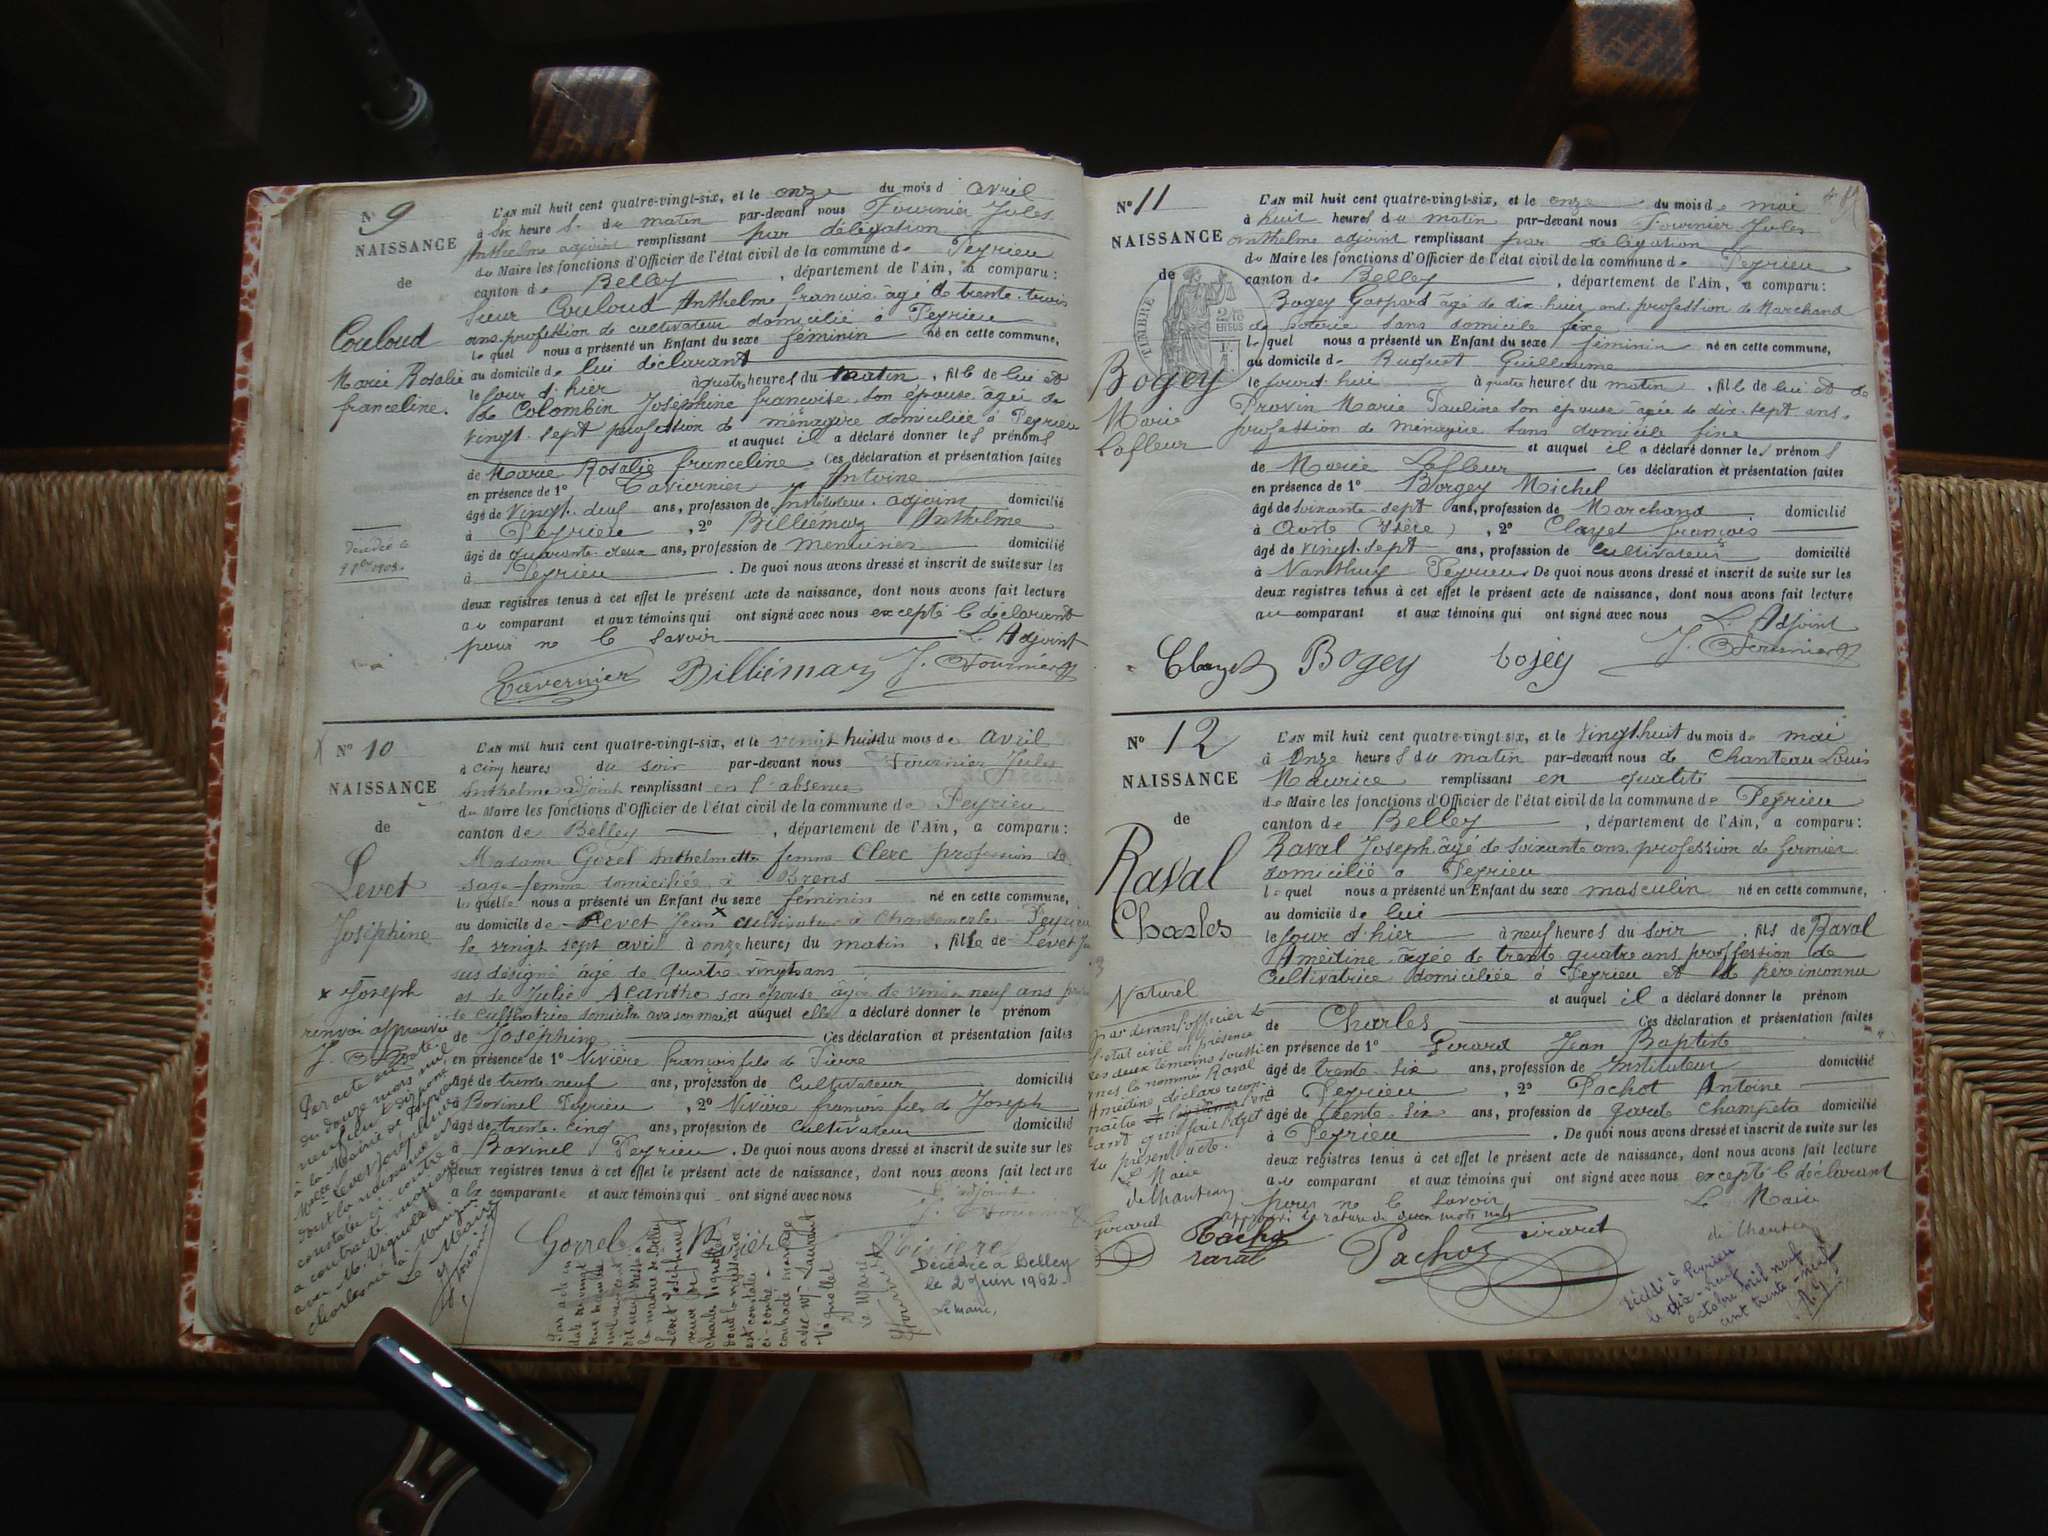 N° 9
NAISSANCE
de
Couloud
Marie Rosalie
franceline.
Décédée le
L'AN mil huit cent quatre-vingt-six, et le onze du mois d'avril
à six heures du matin par-devant nous Fournier Jules
Anthelme adjoint remplissant par délégation
du Maire les fonctions d'Officier de l'état civil de la commune de Peyrieu
canton de Belley, département de l'Ain, a comparu :
sieur Couloud Anthelme françois âgé de trente trois
ans profession de cultivateur domicilié à Peyrieu
lequel nous a présenté un Enfant du sexe féminin né en cette commune,
au domicile de lui déclarant
le jour d'hier à quatre heures du matin, fille de lui et
de Colombin Joséphine françoise son épouse âgée de
vingt-sept profession de ménagère domiciliée à Peyrieu
et auquel il a déclaré donner les prénoms
de Marie Rosalie franceline. Ces déclaration et présentation faites
en présence de 1° Tavernier Antoine
âgé de vingt-neuf ans, profession de Instituteur adjoint domicilié
à Peyrieu, 2° Billiémaz Anthelme
âgé de quarante-deux ans, profession de menuisier domicilié
à Peyrieu. De quoi nous avons dressé et inscrit de suite sur les
deux registres tenus à cet effet le présent acte de naissance, dont nous avons fait lecture
au comparant et aux témoins qui ont signé avec nous excepté le déclarant
pour ne le savoir L'Adjoint
Tavernier Billiémaz J. Fournier
N° 10
NAISSANCE
de
Levet
Joséphine
x Joseph
renvoi approuvé
L'AN mil huit cent quatre-vingt-six, et le vingt huit du mois de avril
à cinq heures du soir par-devant nous Fournier Jules
Anthelme adjoint remplissant en l'absence
du Maire les fonctions d'Officier de l'état civil de la commune de Peyrieu
canton de Belley, département de l'Ain, a comparu :
Madame Gorel Anthelmette femme Clerc profession de
sage-femme domiciliée à Brens
laquelle nous a présenté un Enfant du sexe féminin né en cette commune,
au domicile de Levet Jean x cultivateur à Chantemerle Peyrieu
le vingt sept avril à onze heures du matin, fille de Levet
sus désigné âgé de quatre-vingts ans
et de Julie Acanthe son épouse âgée de vingt neuf ans
et auquel elle a déclaré donner le prénom
de Joséphine Ces déclaration et présentation faites
en présence de 1° Nivière françois fils de Pierre
âgé de trente neuf ans, profession de cultivateur domicilié
à Bovinel Peyrieu, 2° Nivière françois fils de Joseph
âgé de trente-cinq ans, profession de cultivateur domicilié
à Bovinel Peyrieu. De quoi nous avons dressé et inscrit de suite sur les
deux registres tenus à cet effet le présent acte de naissance, dont nous avons fait lecture
a la comparante et aux témoins qui ont signé avec nous
L'adjoint
Gorrel Nivière Nivière J. Fournier
Décédée à Belley
le 2 Juin 1962.
Le maire,
N° 11
NAISSANCE
de
TIMBRE
Bogey
Marie
Lafleur
L'AN mil huit cent quatre-vingt-six, et le onze du mois de mai
à huit heures du matin par-devant nous Fournier Jules
Anthelme adjoint remplissant par délégation
du Maire les fonctions d'Officier de l'état civil de la commune de Peyrieu
canton de Belley, département de l'Ain, a comparu :
Bogey Gaspard âgé de dix huit ans profession de Marchand
de poterie sans domicile fixe
lequel nous a présenté un Enfant du sexe féminin né en cette commune,
au domicile de Guillaume
le jourd'hui à quatre heures du matin, fille de lui et de
Provin Marie Pauline son épouse âgée de dix-sept ans.
profession de ménagère sans domicile fixe
et auquel il a déclaré donner les prénoms
de Marie Lafleur Ces déclaration et présentation faites
en présence de 1° Borgey Michel
âgé de soixante-sept ans, profession de Marchand domicilié
à Aoste (Isère), 2° Clayet françois
âgé de vingt-sept ans, profession de cultivateur domicilié
à Nanthuy Peyrieu. De quoi nous avons dressé et inscrit de suite sur les
deux registres tenus à cet effet le présent acte de naissance, dont nous avons fait lecture
au comparant et aux témoins qui ont signé avec nous
L'Adjoint
Clayet Bogey bojey J. Fournier
N° 12
NAISSANCE
de
Raval
Charles
Naturel
par devant l'officier de
l'état civil en présence
des deux témoins soussi-
gnés la nommée Raval
Améline déclare recon-
naître
du présent acte.
Le Maire
de Chanteau
Girard
L'AN mil huit cent quatre-vingt-six, et le vingt huit du mois de mai
à onze heures du matin par-devant nous de Chanteau Louis
Maurice remplissant en qualité
de Maire les fonctions d'Officier de l'état civil de la commune de Peyrieu
canton de Belley, département de l'Ain, a comparu :
Raval Joseph âgé de soixante ans profession de fermier
domicilié à Peyrieu
lequel nous a présenté un Enfant du sexe masculin né en cette commune,
au domicile de lui
le jour d'hier à neuf heures du soir, fils de Raval
Améline âgée de trente quatre ans profession de
cultivatrice domiciliée à Peyrieu et de père inconnu
et auquel il a déclaré donner le prénom
de Charles Ces déclaration et présentation faites
en présence de 1° Gerard Jean Baptiste
âgé de trente six ans, profession de Instituteur domicilié
à Peyrieu, 2° Pachot Antoine
âgé de trente six ans, profession de garde champête domicilié
à Peyrieu. De quoi nous avons dressé et inscrit de suite sur les
deux registres tenus à cet effet le présent acte de naissance, dont nous avons fait lecture
au comparant et aux témoins qui ont signé avec nous excepté le déclarant
pour ne le savoir Le Maire
de Chanteau
raval Pachot Girard
décédé à Peyrieu
le dix-neuf
octobre mil neuf
cent trente-neuf